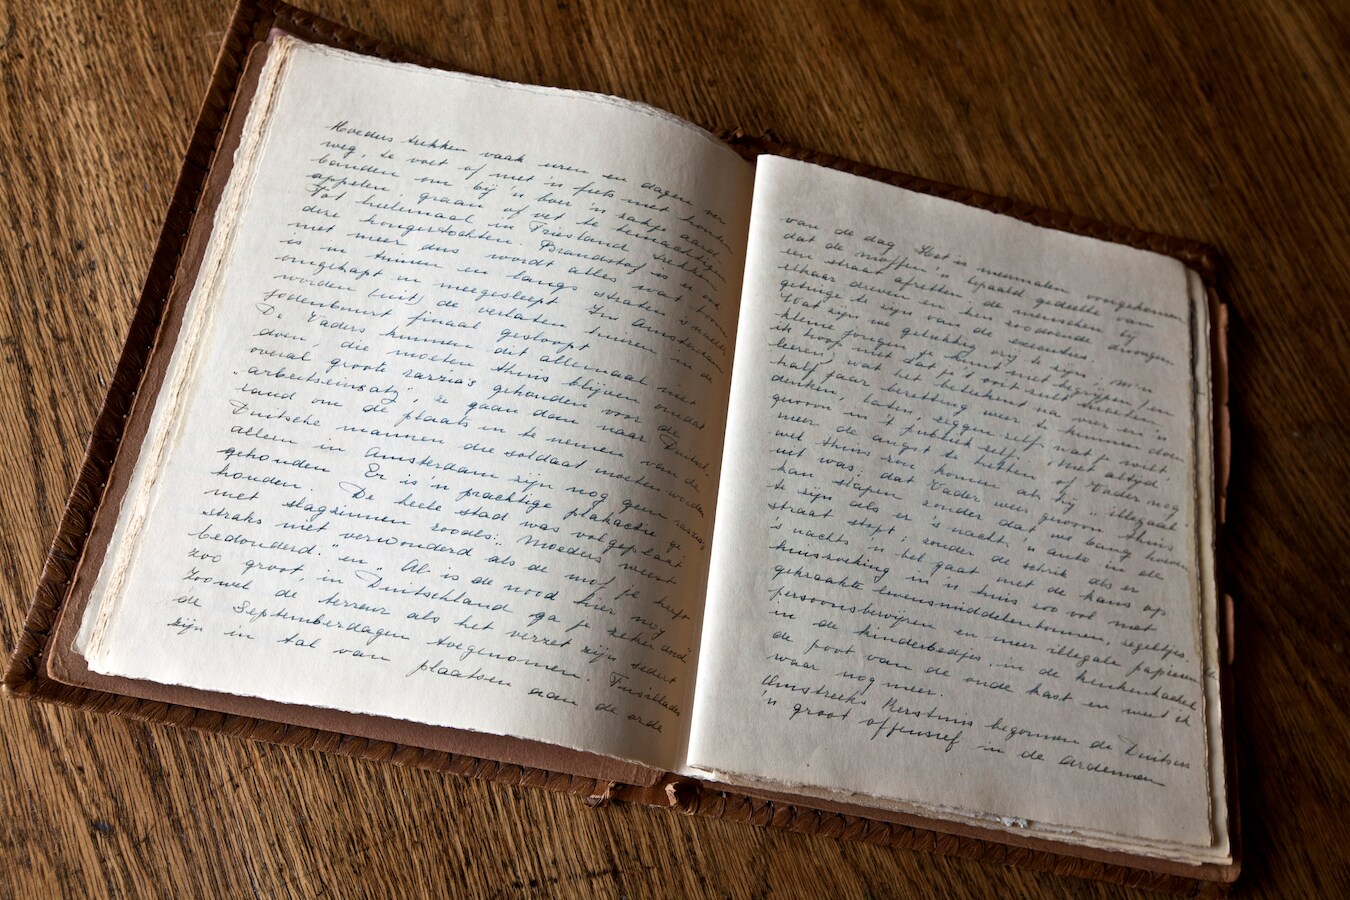 Moeders trekken vaak uren en dagen ver
weg, te voet of met 'n fiets met houten
banden om bij 'n boer 'n zakje aard
appelen, graan of vet te bemachtigen
Tot heelemaal in Friesland trekken
deze hongertochten. Brandstof is er ook
niet meer dus wordt alles wat boom
is in tuinen en langs straten 's nachts
omgekapt en meegesleept. In Amsterdam
worden (uit) de verlaten huizen in de
Jodenbuurt finaal gesloopt.
De Vaders kunnen dit allemaal niet
doen, die moeten thuis blijven omdat
overal groote razzia's gehouden voor de
"arbeitseinsatz", ze gaan dan naar Duitsch
land om de plaats in te nemen van de
Duitsche mannen die soldaat moeten worden
alleen in Amsterdam zijn nog geen razzia's
gehouden. Er is 'n prachtige plakactie ge
houden. De heele stad was volgeplakt
met slagzinnen zooals: Moeders weest
straks niet verwonderd als de mof je heeft
bedonderd." en "Al is de nood hier nog
zoo groot, in Duitschland ga je zeker dood"
Zoowel de terreur als het verzet zijn sedert
de Septemberdagen toegenomen. Fusillades
zijn in tal van plaatsen aan de orde
van de dag. Het is meermalen voorgekomen
dat de moffen 'n bepaald gedeelte van
een straat afzetten, de menschen bij
elkaar dreven en hen zoodoende dwongen
getuige te zijn van de executies.
Wat zijn we gelukkig vrij te zijn; m'n
kleine jongen, je kunt niet begrijpen, en
ik hoop niet dat je 't ooit zult hoeven
leeren, wat het beteekent na vier en 'n
half jaar bezetting weer te kunnen doen
denken, laten, zeggen zelf, wat je wilt
gewoon in 't publiek zelfs. Niet altijd
meer de angst te hebben of Vader nog
wel thuis zou komen als hij "illegaal"
uit was; dat Vader weer gewoon thuis
kan slapen zonder dat we bang hoeven
te zijn als er 's nachts 'n auto in de
straat stopt; zonder de schrik als er
's nachts 'n bel gaat met de kans op
huiszoeking in 'n huis zoo vol met
gekraakte levensmiddelenbonnen, zegeltjes,
persoonsbewijzen en meer illegale papieren
in de kinderbedjes, in de keukenkachel
de poot van de ronde kast en weet ik
waar nog meer.
Omstreeks Kerstmis begonnen de Duitsers
'n groot offensief in de Ardennen